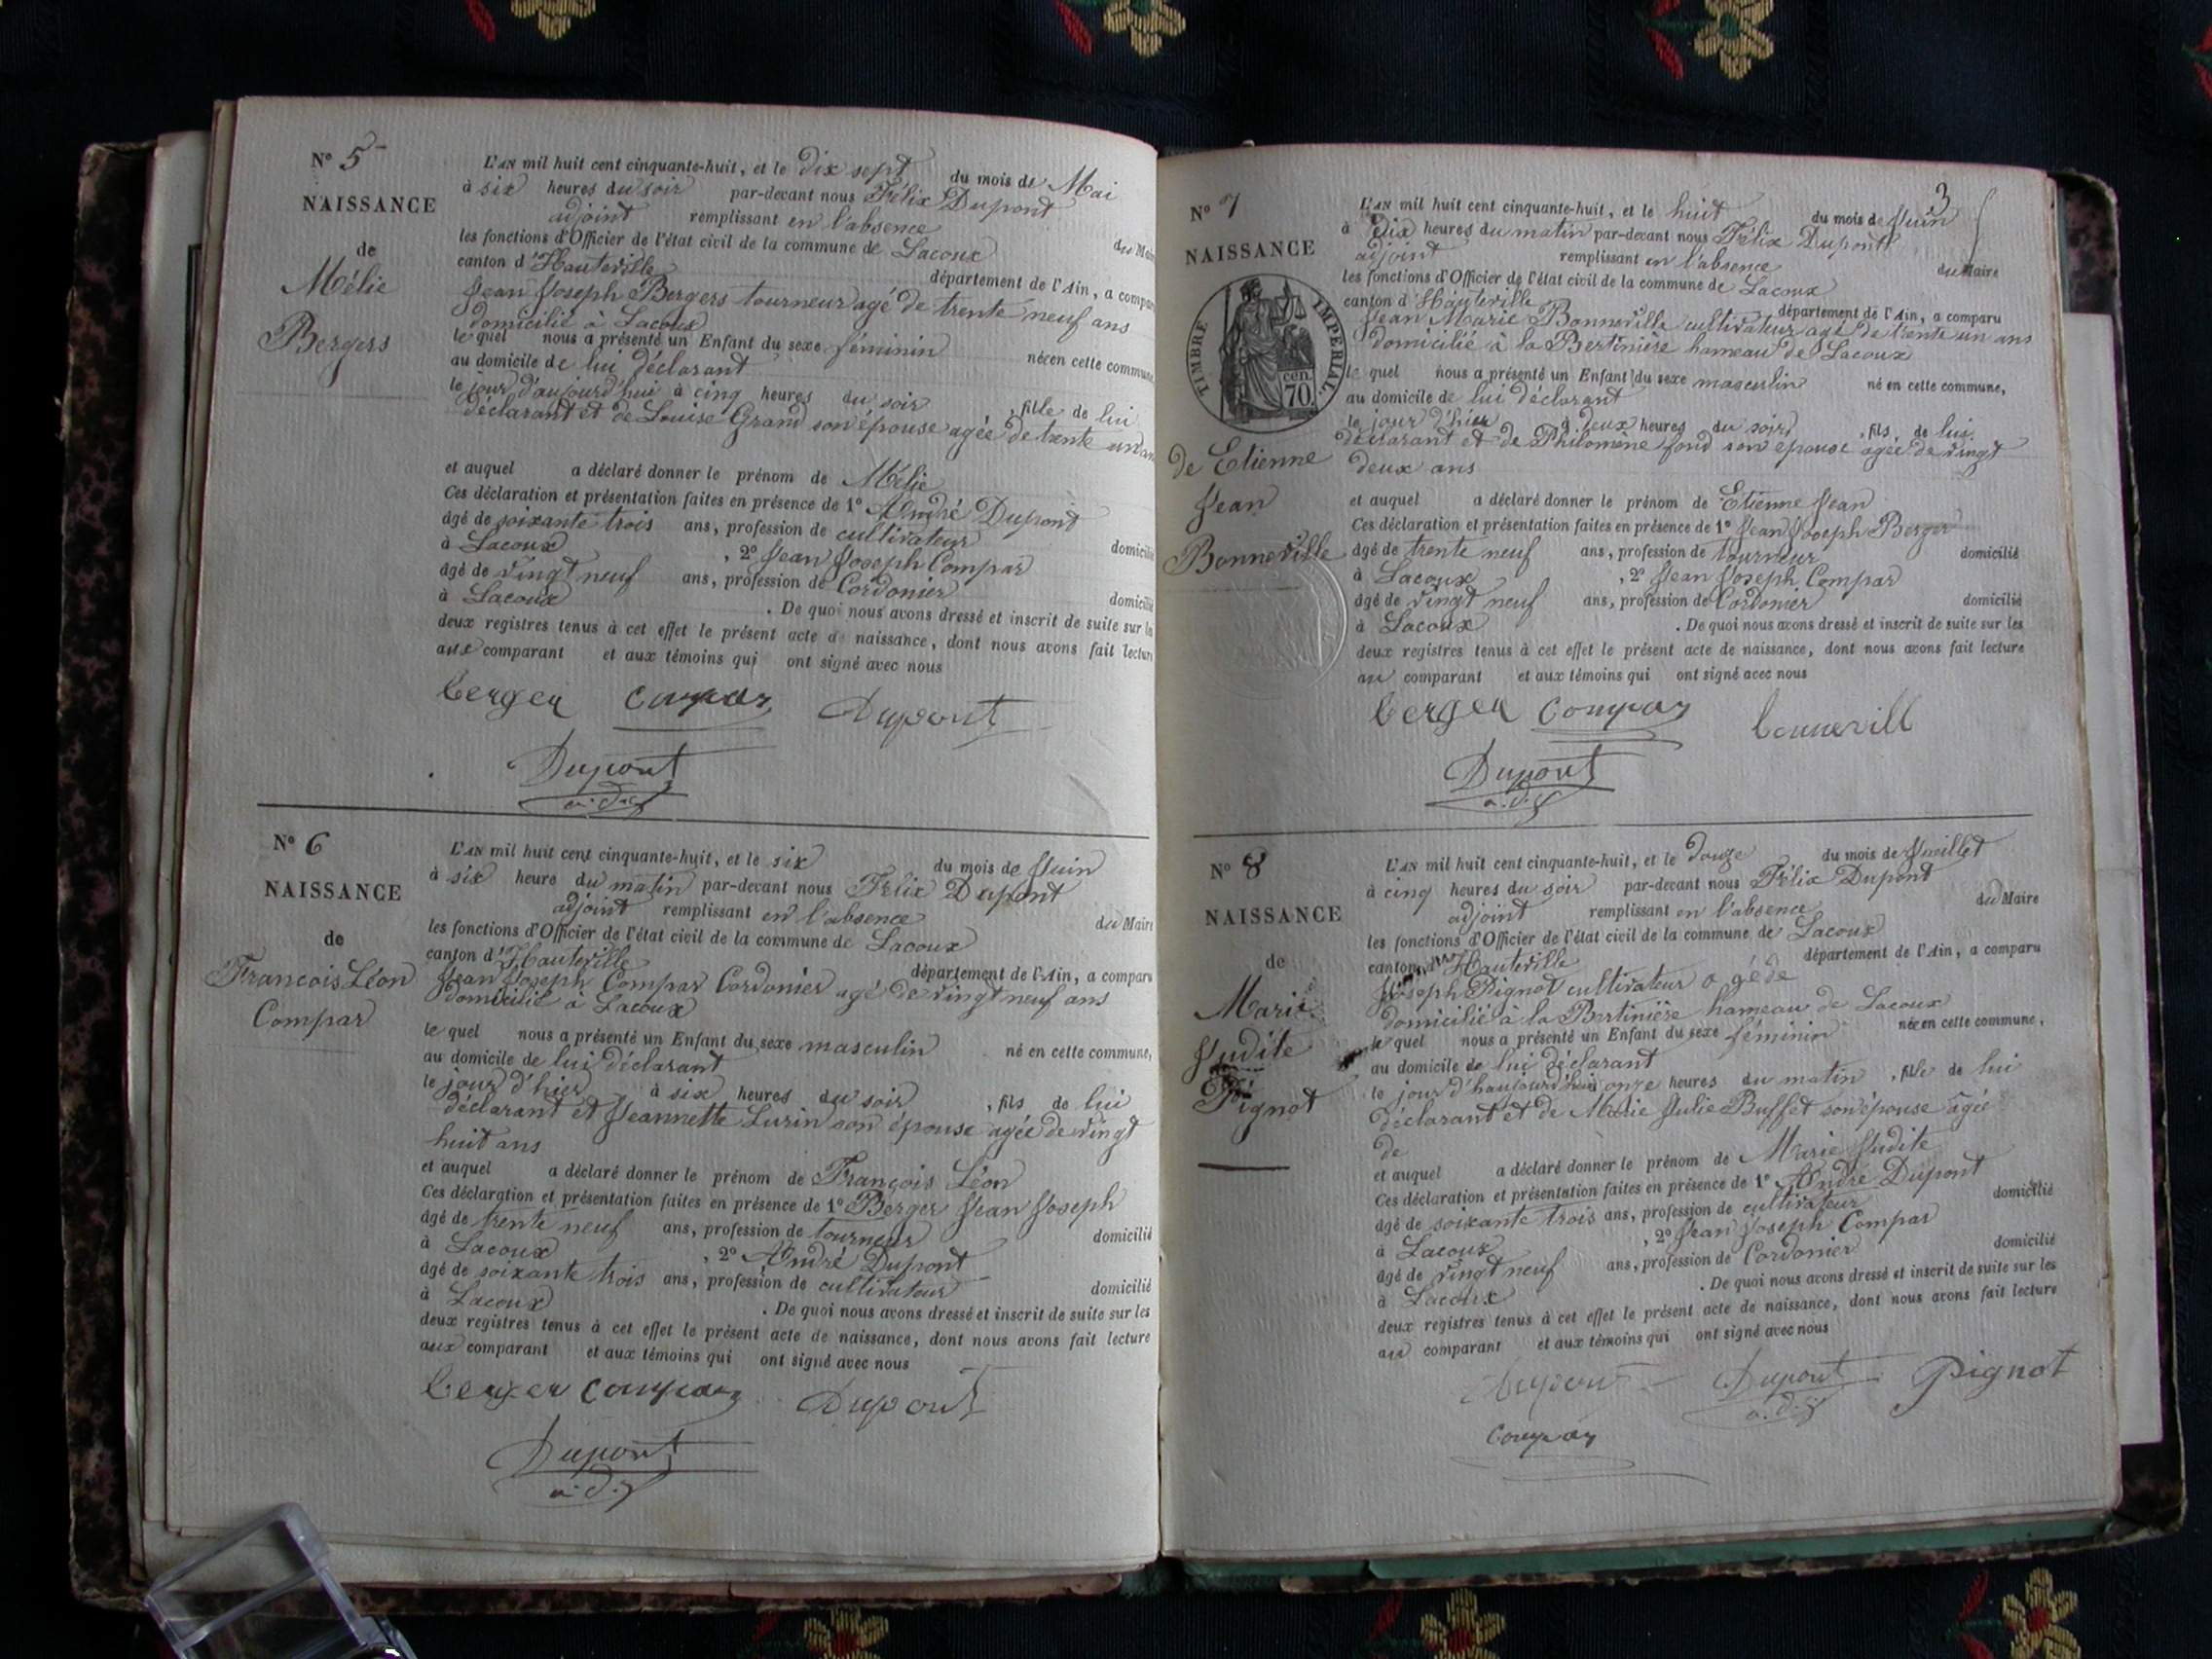 N° 5
NAISSANCE
de
Mélie
Bergers
L'AN mil huit cent cinquante-huit, et le dix sept du mois de Mai
à six heures du soir par-devant nous Félix Dupont
adjoint remplissant en l'absence du Maire
les fonctions d'Officier de l'état civil de la commune de Lacoux
canton d'Hauteville département de l'Ain, a comparu
Jean Joseph Bergers tourneur agé de trente neuf ans
domicilié à Lacoux
le quel nous a présenté un Enfant du sexe féminin née en cette commune,
au domicile de lui déclarant
le jour d'aujourd'hui à cinq heures du soir , fille de lui
déclarant et de Louise Grand son épouse agée de trente un ans
et auquel a déclaré donner le prénom de Mélie
Ces déclaration et présentation faites en présence de 1° André Dupont
âgé de soixante trois ans, profession de cultivateur domicilié
à Lacoux , 2° Jean Joseph Compar
âgé de vingt neuf ans, profession de Cordonier domicilié
à Lacoux . De quoi nous avons dressé et inscrit de suite sur les
deux registres tenus à cet effet le présent acte de naissance, dont nous avons fait lecture
aux comparant et aux témoins qui ont signé avec nous
berger Compar Dupont
Dupont
a.d.j
N° 6
NAISSANCE
de
Francois Léon
Compar
L'AN mil huit cent cinquante-huit, et le six du mois de Juin
à six heure du matin par-devant nous Félix Dupont
adjoint remplissant en l'absence du Maire
les fonctions d'Officier de l'état civil de la commune de Lacoux
canton d'Hauteville département de l'Ain, a comparu
Jean Joseph Compar Cordonier agé de vingt neuf ans
domicilié à Lacoux
le quel nous a présenté un Enfant du sexe masculin né en cette commune,
au domicile de lui déclarant
le jour d'hier à six heures du soir , fils de lui
déclarant et Jeannette Lurin son épouse agée de vingt
huit ans
et auquel a déclaré donner le prénom de François Léon
Ces déclaration et présentation faites en présence de 1° Berger Jean Joseph
âgé de trente neuf ans, profession de tourneur domicilié
à Lacoux , 2° André Dupont
âgé de soixante trois ans, profession de cultivateur domicilié
à Lacoux . De quoi nous avons dressé et inscrit de suite sur les
deux registres tenus à cet effet le présent acte de naissance, dont nous avons fait lecture
aux comparant et aux témoins qui ont signé avec nous
berger Compar Dupont
Dupont
a.d.j
3
N° 7
NAISSANCE
TIMBRE IMPERIAL
cen.
70.
de Etienne
Jean
Bonneville
L'AN mil huit cent cinquante-huit, et le huit du mois de Juin
à Dix heures du matin par-devant nous Félix Dupont
adjoint remplissant en l'absence du Maire
les fonctions d'Officier de l'état civil de la commune de Lacoux
canton d'Hauteville département de l'Ain, a comparu
Jean Marie Bonneville cultivateur agé de trente un ans
domicilié à la Bertinière hameau de Lacoux
le quel nous a présenté un Enfant du sexe masculin né en cette commune,
au domicile de lui déclarant
le jour d'hier à deux heures du soir , fils de lui
déclarant et de Philomène fond son épouse agée de vingt
deux ans
et auquel a déclaré donner le prénom de Etienne Jean
Ces déclaration et présentation faites en présence de 1° Jean Joseph Berger
âgé de trente neuf ans, profession de tourneur domicilié
à Lacoux , 2° Jean Joseph Compar
âgé de vingt neuf ans, profession de Cordonier domicilié
à Lacoux . De quoi nous avons dressé et inscrit de suite sur les
deux registres tenus à cet effet le présent acte de naissance, dont nous avons fait lecture
au comparant et aux témoins qui ont signé avec nous
berger Compar bonnevill
Dupont
a.d.j
N° 8
NAISSANCE
de
Marie
Judite
Pignot
L'AN mil huit cent cinquante-huit, et le douze du mois de Juillet
à cinq heures du soir par-devant nous Félix Dupont
adjoint remplissant en l'absence du Maire
les fonctions d'Officier de l'état civil de la commune de Lacoux
canton d'Hauteville département de l'Ain, a comparu
Joseph Pignot cultivateur agé de
domicilié à la Bertinière hameau de Lacoux
le quel nous a présenté un Enfant du sexe féminin née en cette commune,
au domicile de lui déclarant
le jour d'haujourd'hui onze heures du matin , fille de lui
déclarant et de Marie Julie Buffet son épouse agée
de
et auquel a déclaré donner le prénom de Marie Judite
Ces déclaration et présentation faites en présence de 1° André Dupont
âgé de soixante trois ans, profession de cultivateur domicilié
à Lacoux , 2° Jean Joseph Compar
âgé de vingt neuf ans, profession de Cordonier domicilié
à Lacoux . De quoi nous avons dressé et inscrit de suite sur les
deux registres tenus à cet effet le présent acte de naissance, dont nous avons fait lecture
au comparant et aux témoins qui ont signé avec nous
Dupont Dupont Pignot
a.d.j
Compar